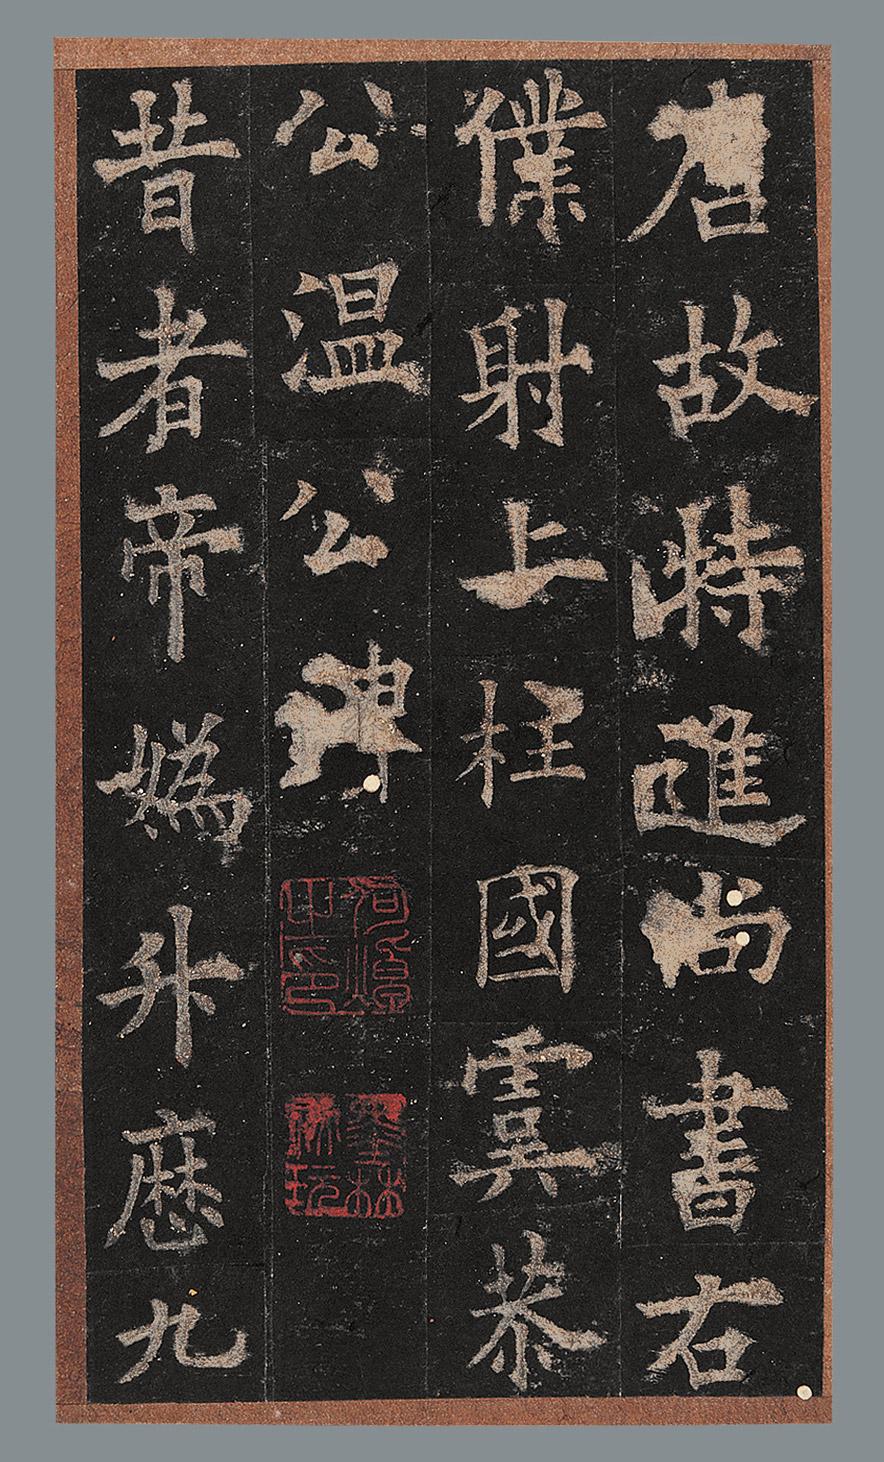 唐故特進尚書右
僕射上柱國虞恭
公温公碑
昔者帝媯升歷九
墨林祕玩